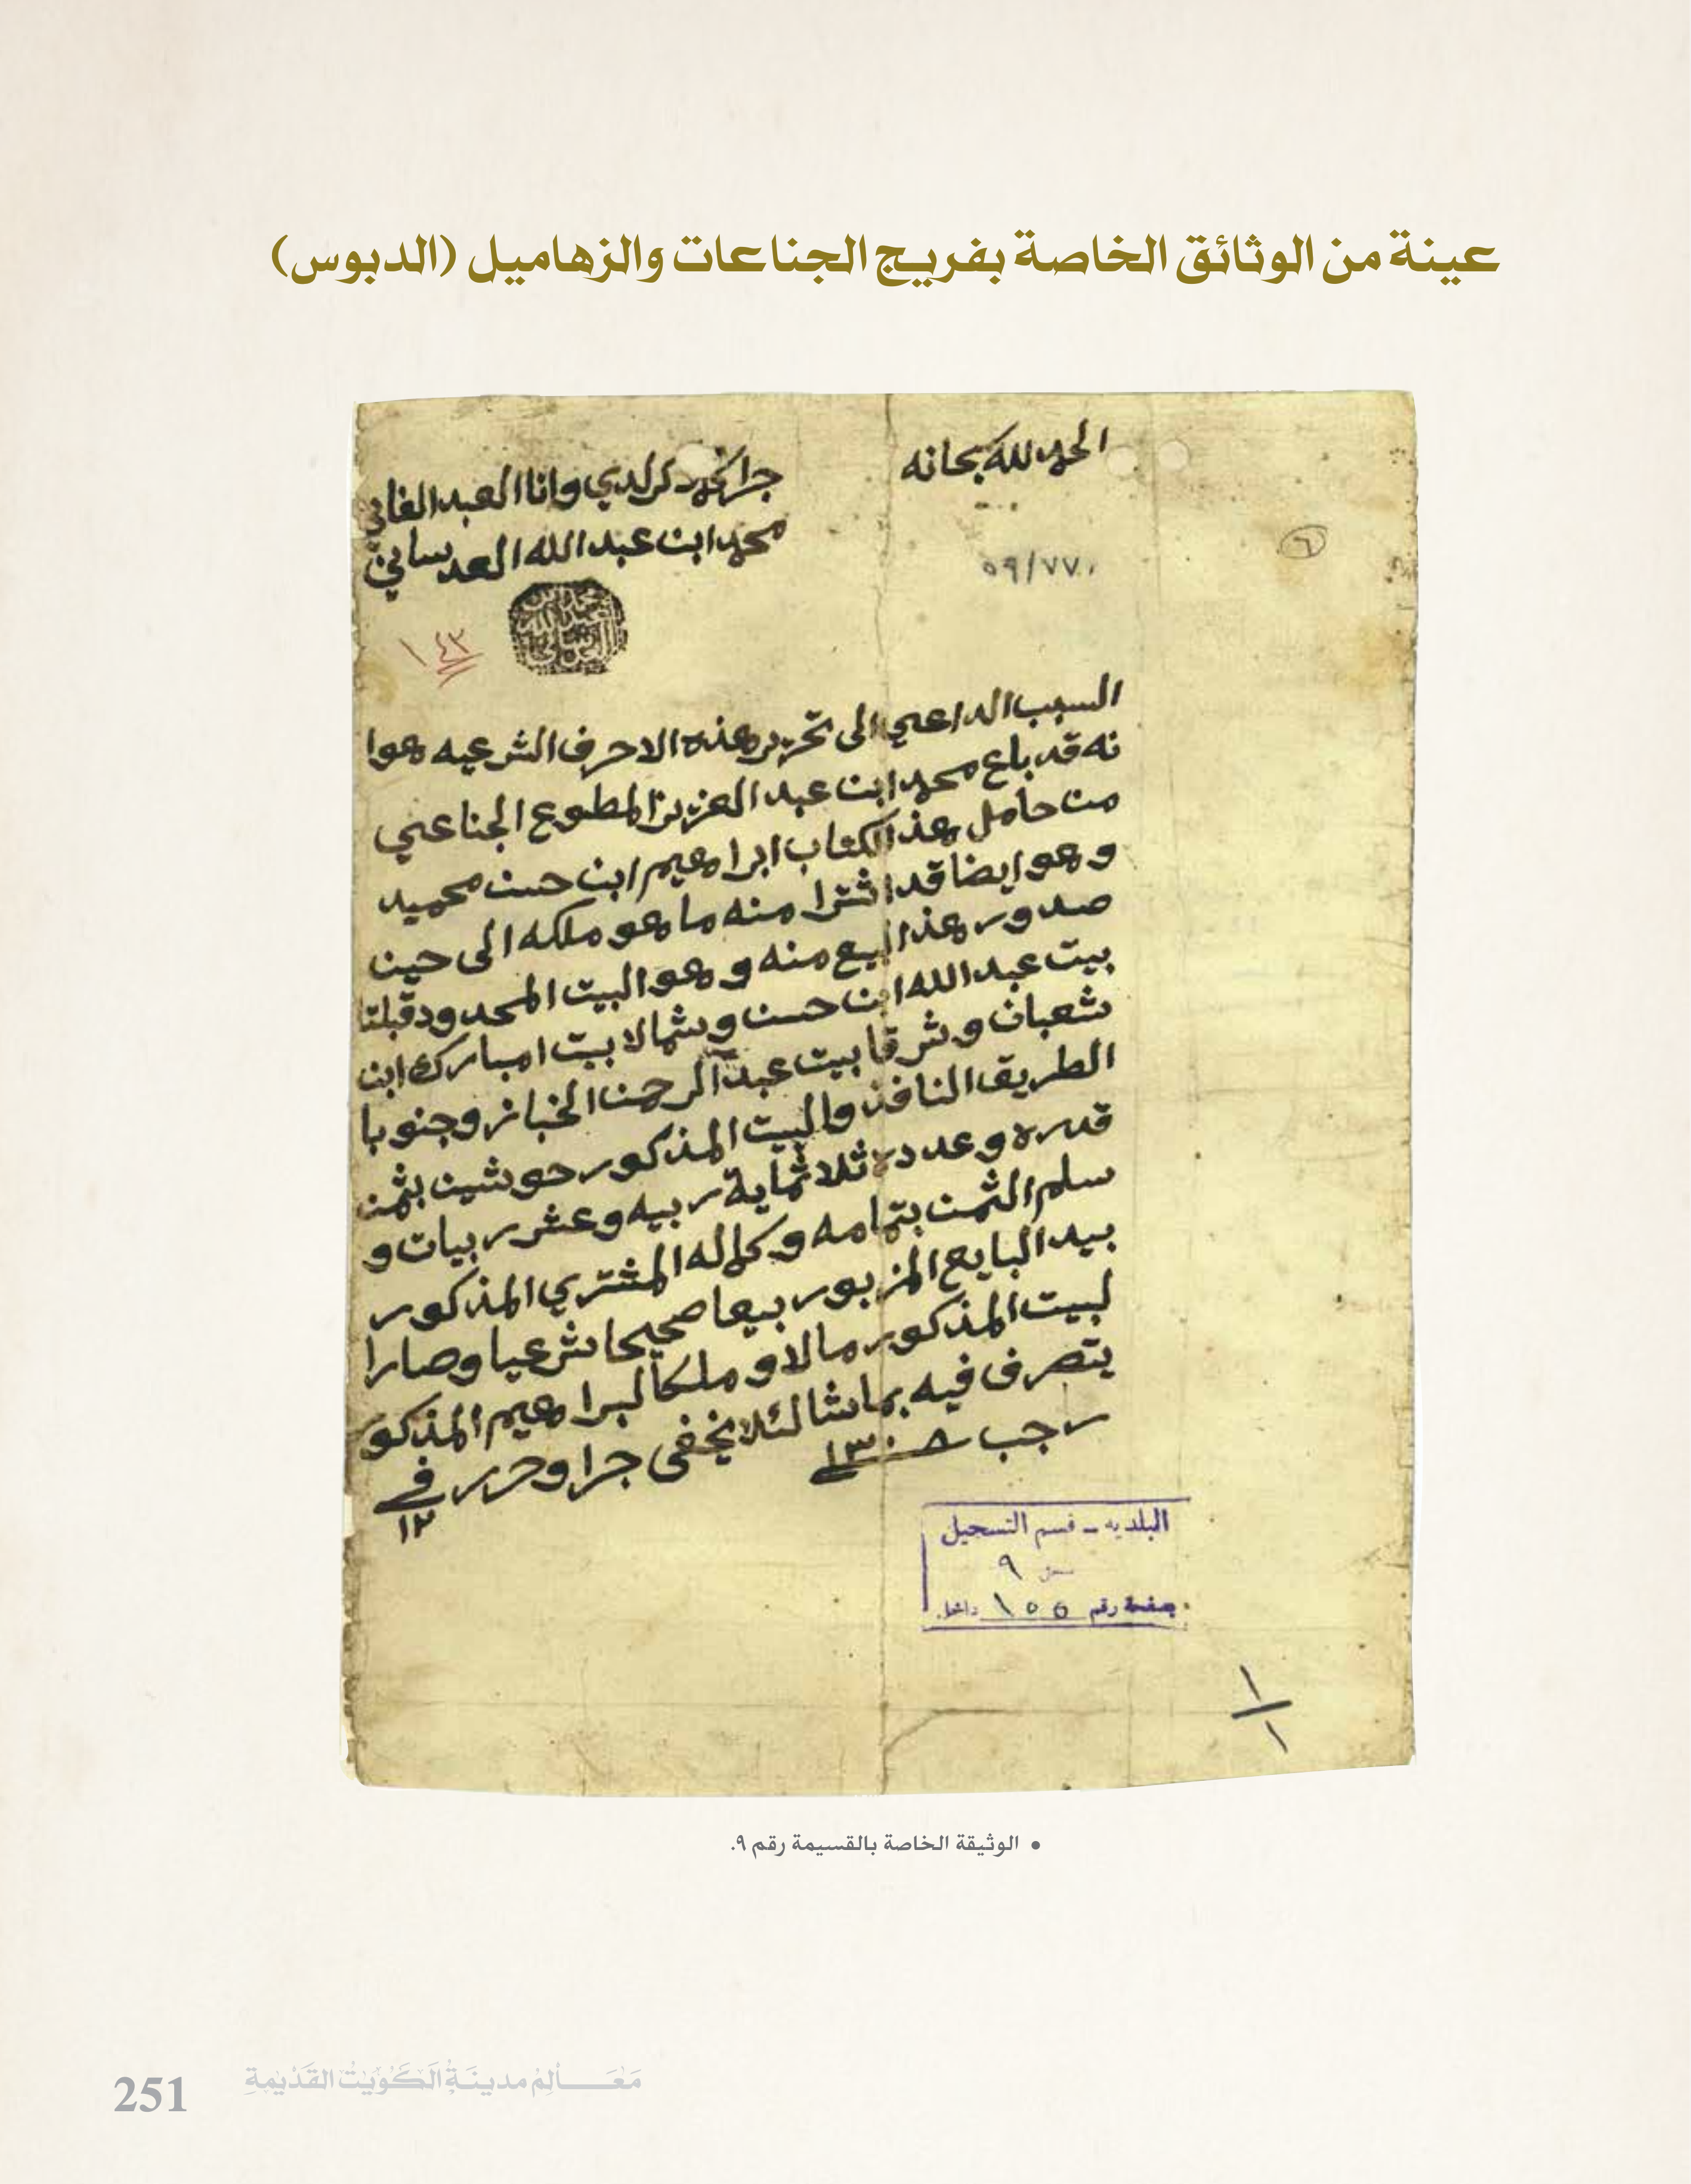 عينة من الوثائق الخاصة بفريج الجناعات والزهاميل (الدبوس)
الحمد لله سبحانه
جرا كما ذكر لدي وانا العبد الفاني
محمد ابن عبد الله العدساني
٦
٥٩/٧٧٠
١٤٣
السبب الداعي الى تحرير هذه الاحرف الشرعيه هوا
نه قد باع محمد ابن عبد العزيز المطوع الجناعي
من حامل هذا الكتاب ابراهيم ابن حسن محميد
وهو ايضا قد اشترا منه ما هو ملكه الى حين
صدور هذا البيع منه وهو البيت المحدود قبلتا
بيت عبد الله ابن حسن وشمالا بيت امبارك ابن
شعبان وشرقا بيت عبد الرحمن الخباز وجنوبا
الطريق النافذ والبيت المذكور حوشين بثمن
قدره وعدده ثلاثماية ربيه وعشر ربيات و
سلم الثمن بتمامه وكماله المشتري المذكور
بيد البايع المزبور بيعا صحيحا شرعيا وصارا
لبيت المذكور مالا وملكا لبراهيم المذكور
يتصرف فيه بما شا لئلا يخفى جرا وحرر في
١٢
رجب ١٣٠٨
البلديه - قسم التسجيل
٩
صفحة رقم ١٥٥ داخل
١
١
• الوثيقة الخاصة بالقسيمة رقم ٩.
251 مَعَالِم مدينَة الكُوَيْت القَدِيمَةِ